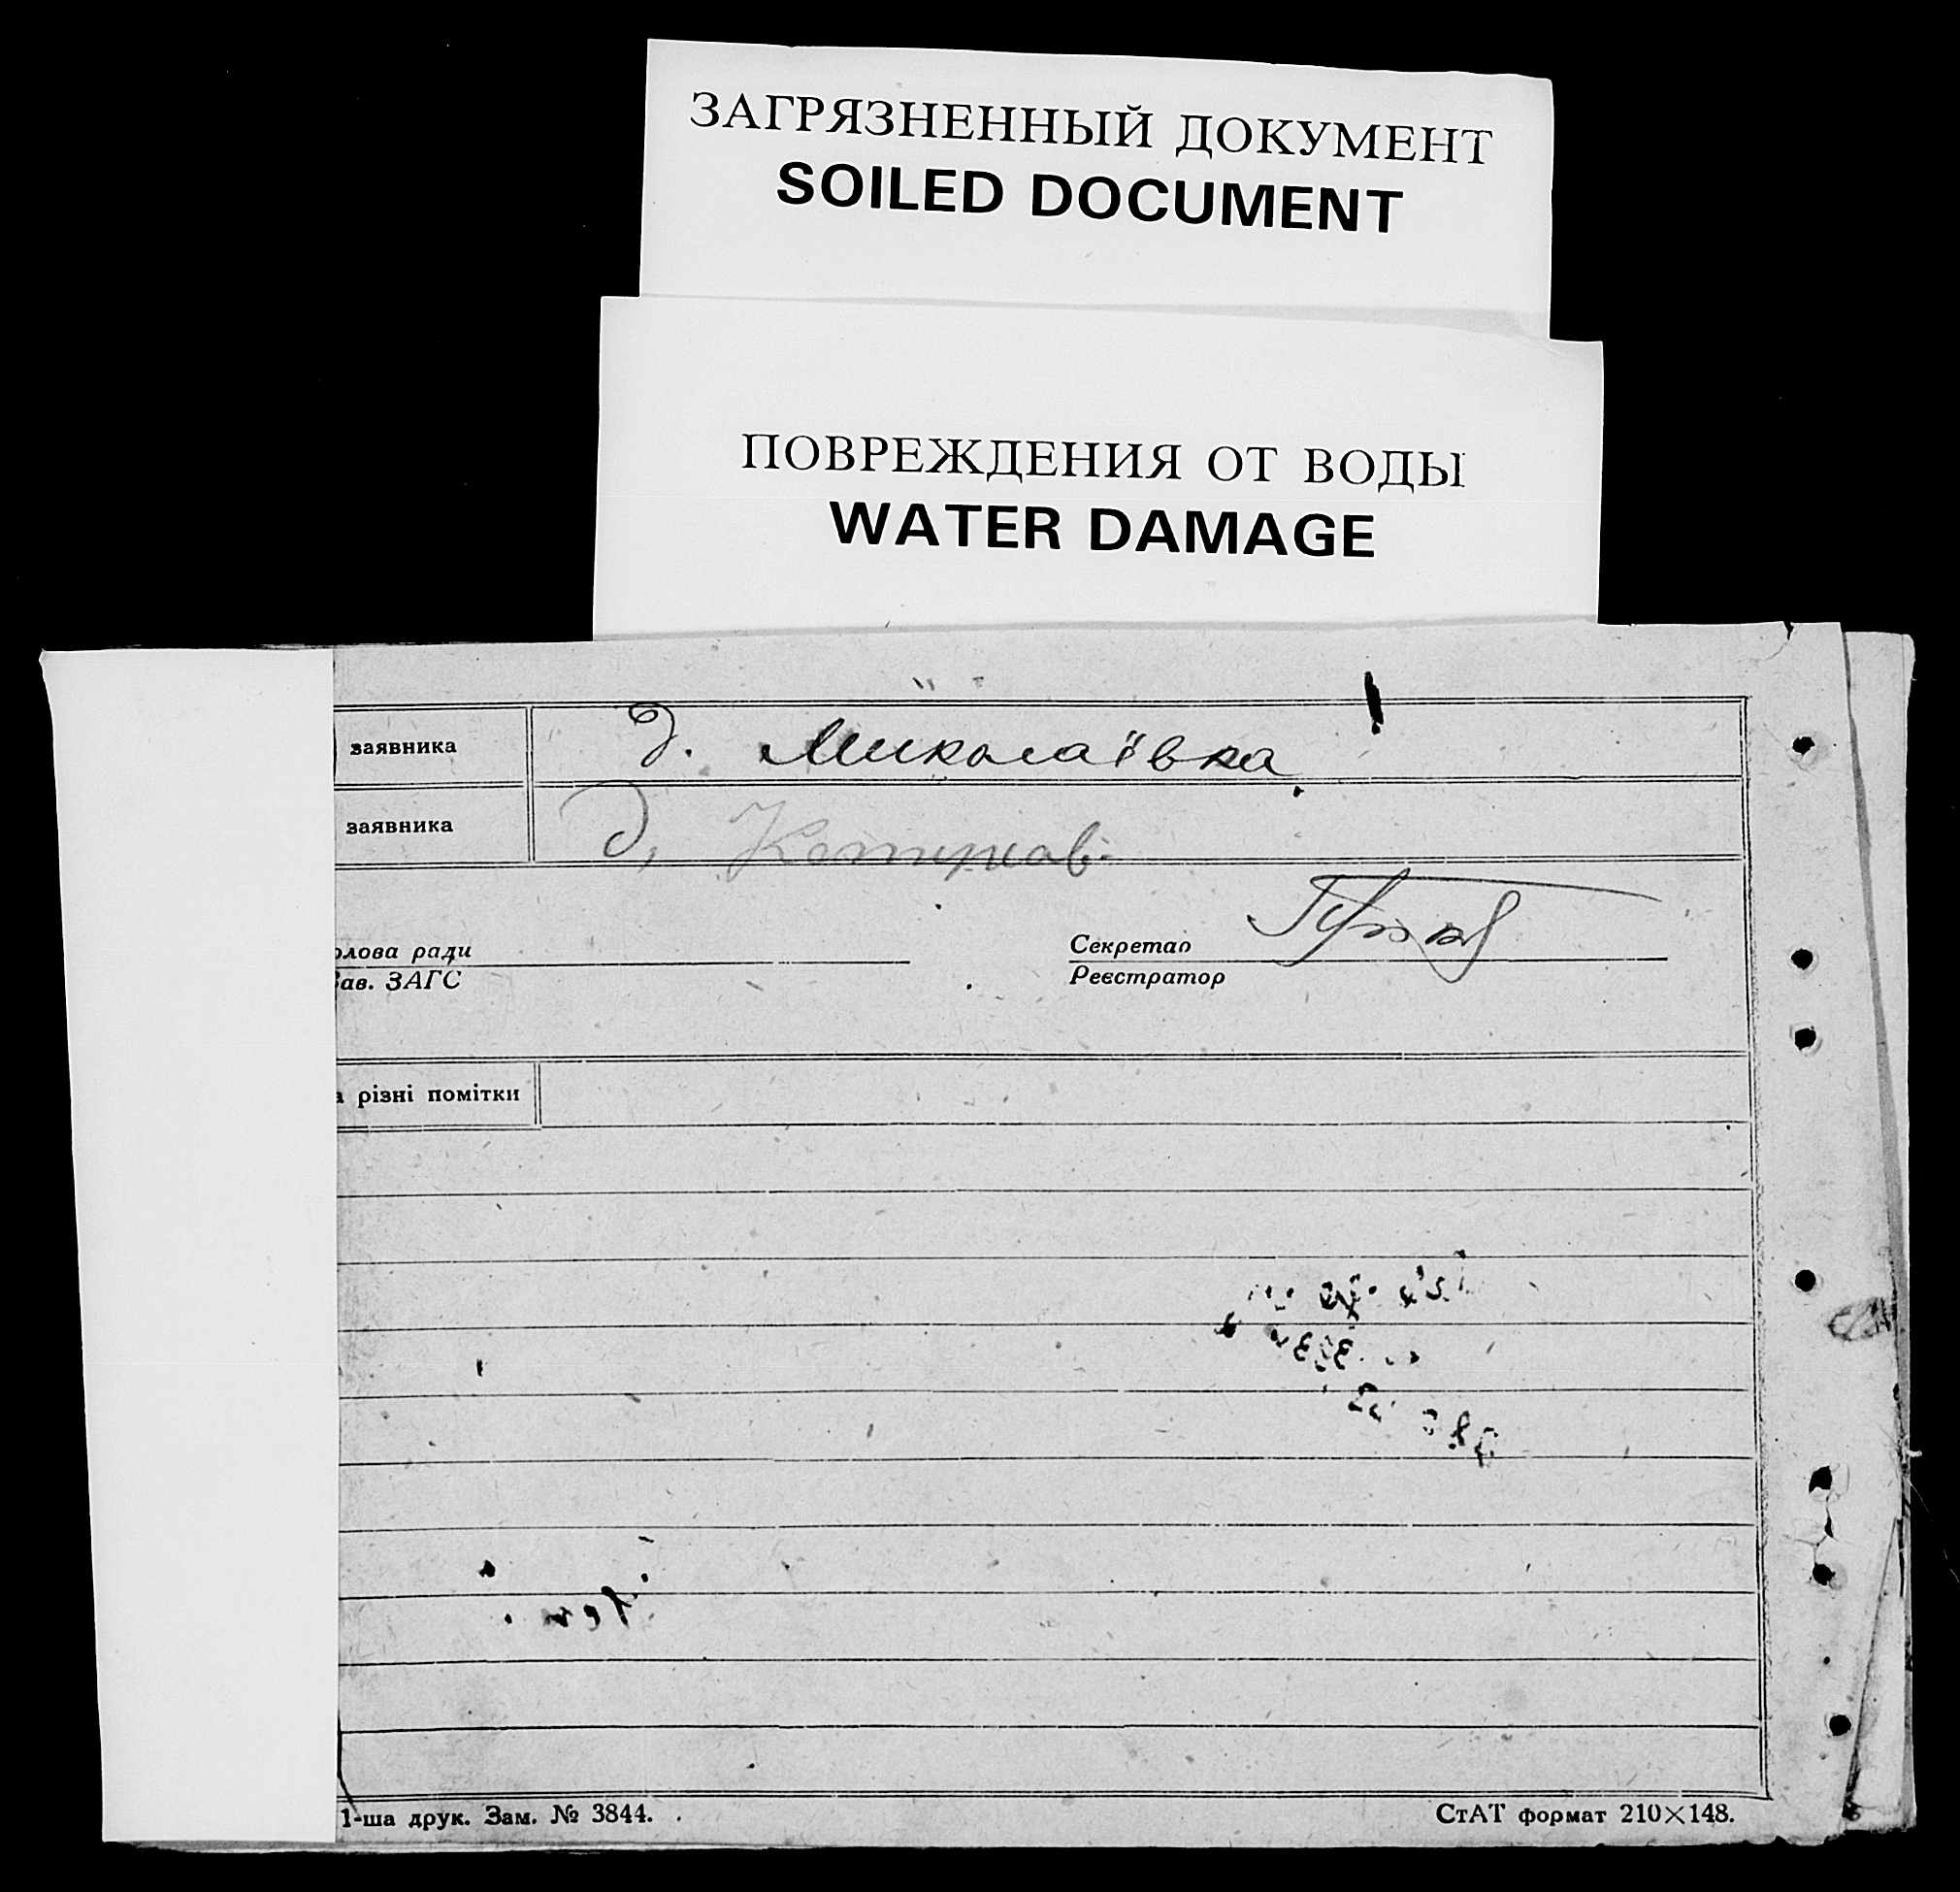 ЗАГРЯЗНЕННЫЙ ДОКУМЕНТ
SOILED DOCUMENT
ПОВРЕЖДЕНИЯ ОТ ВОДЫ
WATER DAMAGE
заявника д. Миколаївка
заявника д.
олова ради
ав. ЗАГС
Секретар
Реєстратор
а різні помітки
1-ша друк. Зам. № 3844.
СтАТ формат 210×148.